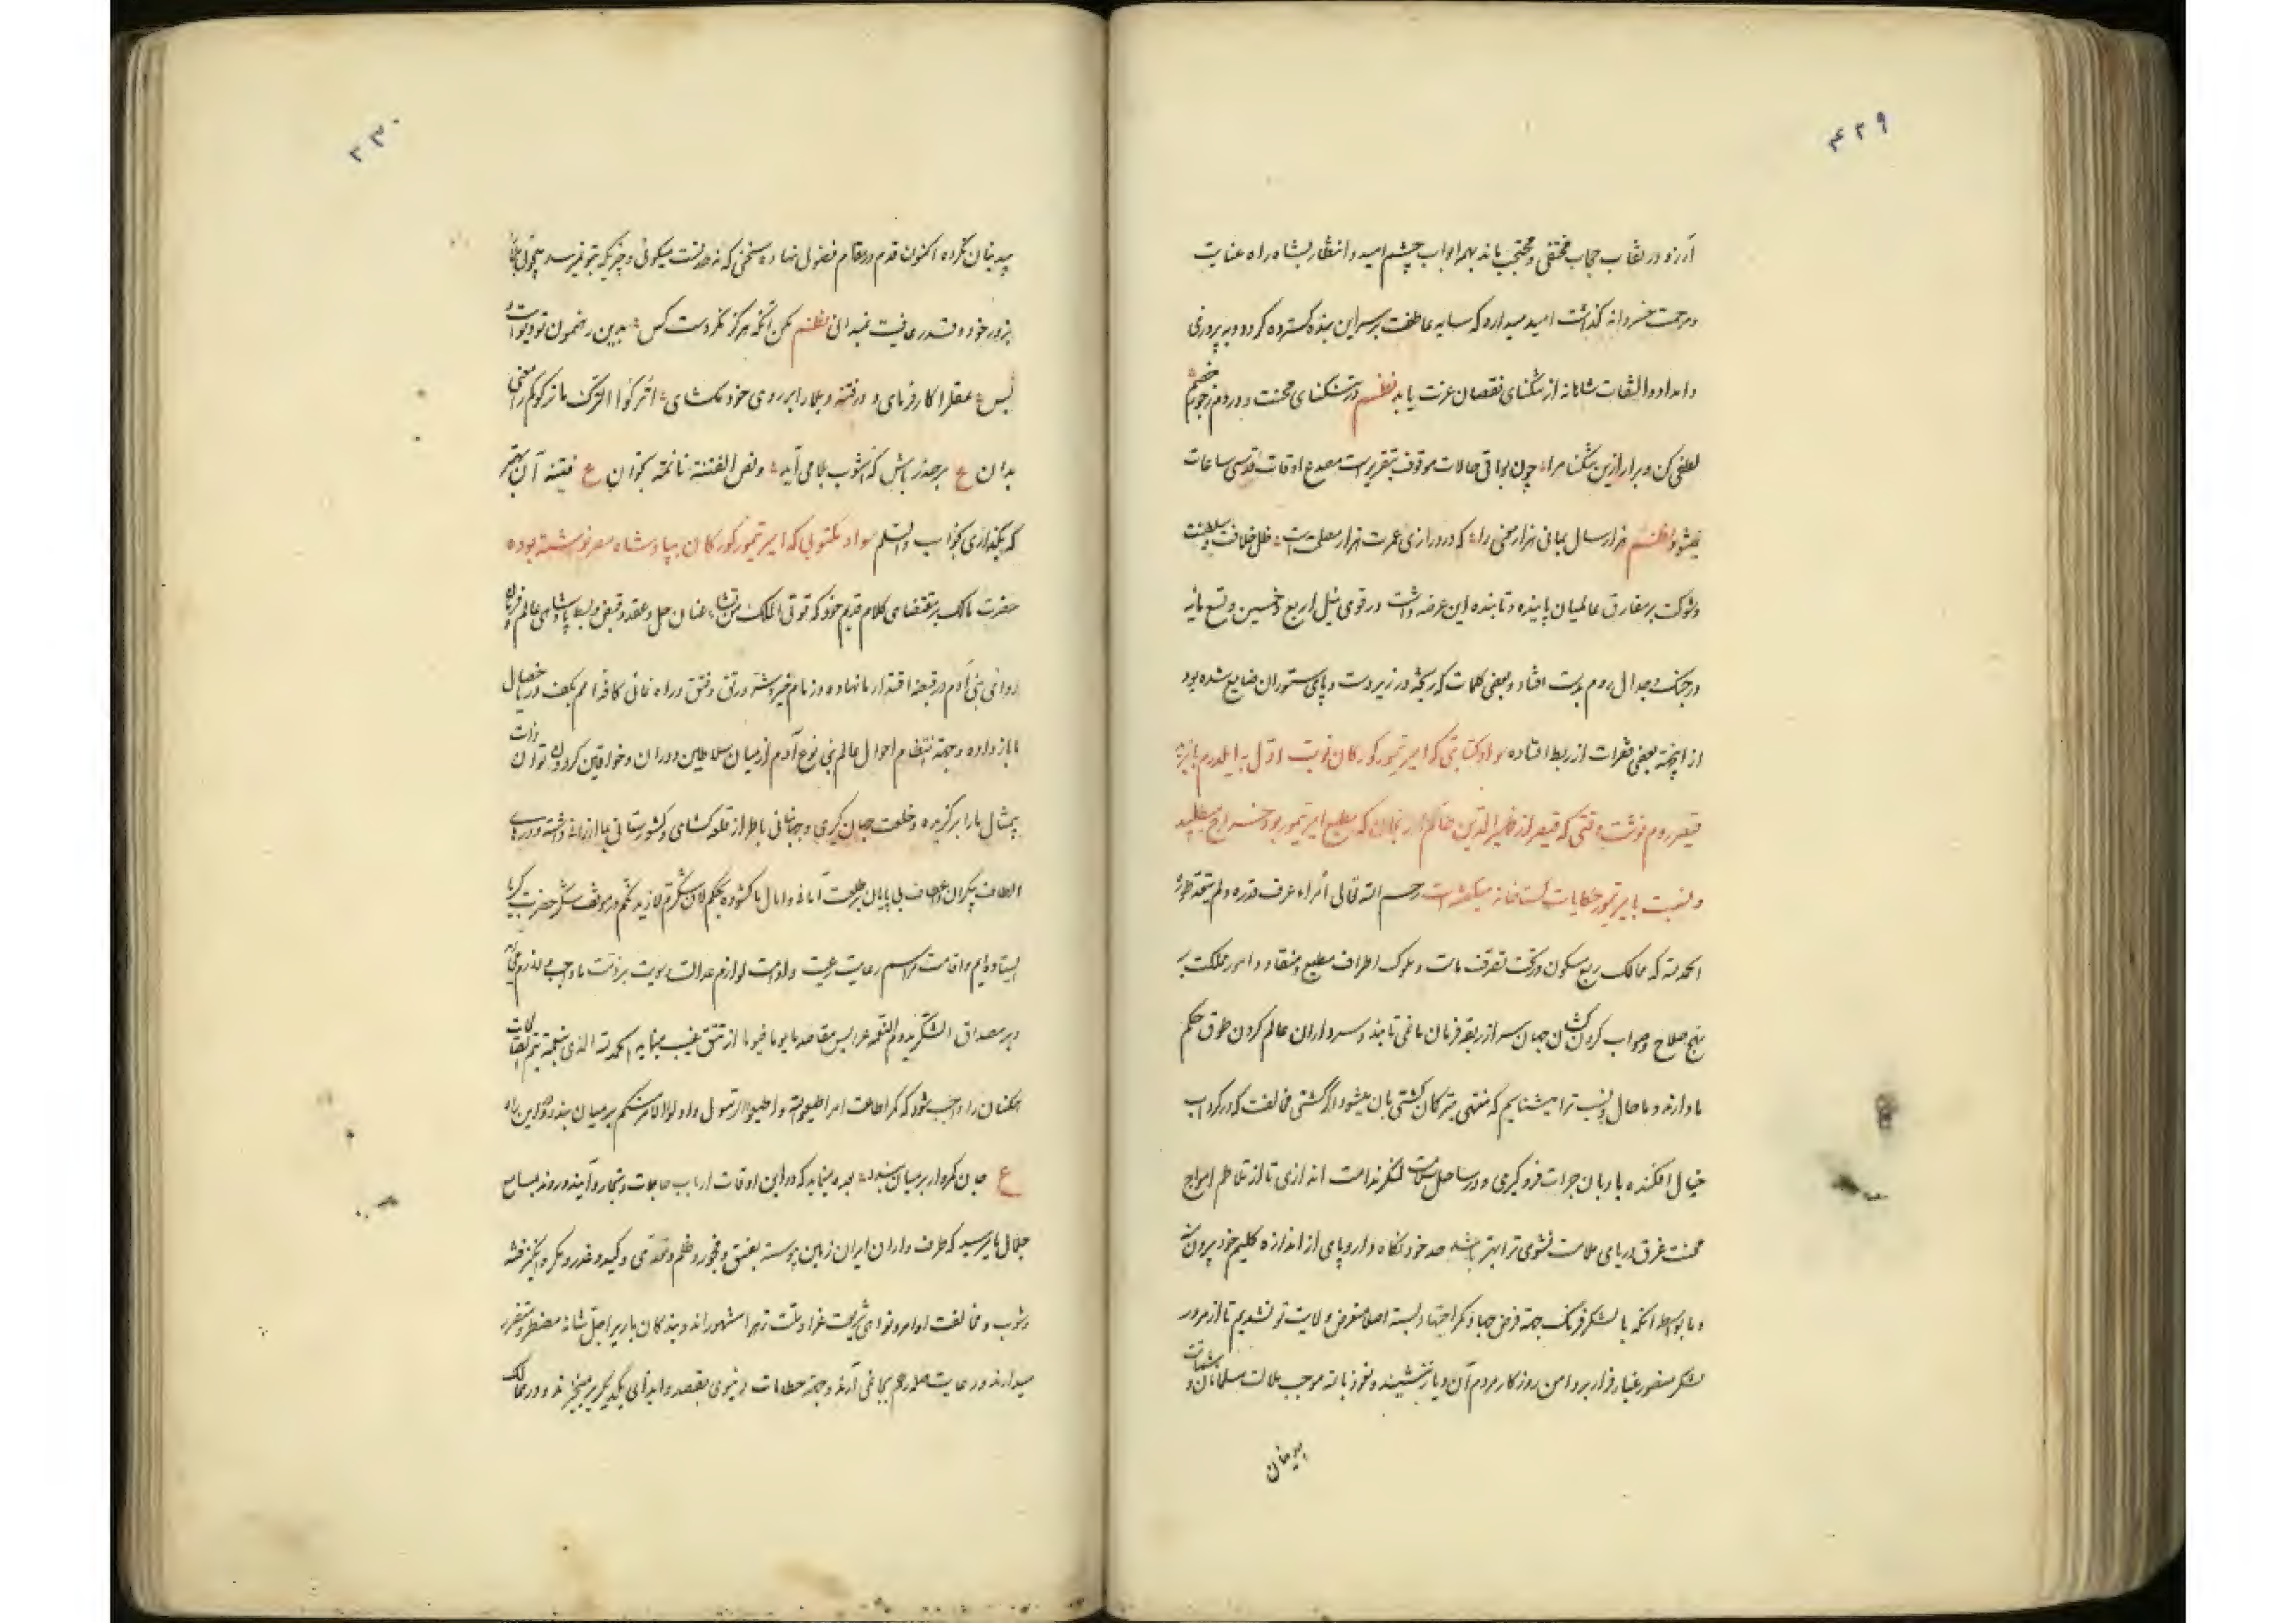 ۴۲۹
آرزو در نقاب حجاب مختفی و محتجب ماند بهمه ابواب چشم امید و انتظار بشاه راه عنایت
و مرحمت خسروانه گذاشت امید میدارد که سایه عاطفت بر سر این بنده گسترده گردد و بپروری
و امداد و التفات شاهانه از تنگنای نقصان عزت یابد نظم در تنگنای محنت و دردم
لطفی کن و برار ازین تنگنا مرا چون بواقی حالات موقوف بتقریر است مصدع اوقات قدسی ساعات
نمیشود نظم هزار سال بمانی هزار معنی را که در درازی عمرت هزار مصلحت است ظل خلافت و سلطنت
و شوکت بر مفارق عالمیان پاینده و تابنده این عرضه داشت در قوی ئیل اربع و خمسین و تسعمائه
در جنگ و جدال روم بدست افتاد و بعضی کلمات که ریخته در زیر دست و پای ستوران ضایع شده بود
از اینجهة بعضی فقرات از ربط افتاده سواد کتابتی که امیر تیمور گورکان نوبت اول به ایلدرم بایزید
قیصر روم نوشت وقتی که قیصر از طهیر الدین حاکم ارزنجان که مطیع امیر تیمور بود خراج میطلبید
و نسبت بامیر تیمور حکایات گستاخانه میگفته است رحم الله تعالی امراء عرف قدره و لم یتعد طوره
الحمد لله که ممالک ربع مسکون در تحت تصرف ماست و ملوک اطراف مطیع و منقاد و امور مملکت بر
نهج صلاح و صواب گردن کشان جهان سر از ربقه فرمان ما نمی تابند و سرداران عالم گردن طوق حکم
ما دارند و ما حال و نسب ترا میشناسیم که منتهی بترکان کشتی بان میشود اگر کشتی مخالفت که در گرداب
خیال افکنده بادبان جرات فرو گیری و در ساحل سلامت لنگر ندامت اندازی تا از تلاطم امواج
محنت غرق دریای ملامت نشوی ترا بهتر باشد حد خود نگاه دار و پای از اندازه گلیم خود بیرون منه
و ما بواسطه آنکه با لشکر فرنگ جهة فرض جهاد کمر اجتهاد بسته اصلا متعرض ولایت تو نشدیم تا از مرور
لشکر منصور غبار فرار بر دامن روزگار مردم آن دیار ننشیند و نعوذ بالله موجب ملالت مسلمانان و شماتت
بدیشان
۴۳۰
بیدینان نگردد اکنون قدم در مقام فضولی نهاده سخنی که نه حد تست میگوئی و چیزیکه بتو نمیرسد میجوئی
بزور خود و قدر عافیت نمیدانی نظم مکن آنکه هرگز نکردست کس بدین رهنمون تو دیو است و
بس عقل را کار فرمای و در فتنه و بلا را بر روی خود مگشای اترکوا الترک ما ترکوکم را
بدان ع برحذر باش که آشوب بلا می آید و نص الفتنة نائمة بخوان ع فتنه آن بهتر
که بگذاری بخواب والسلم سواد مکتوبی که امیر تیمور گورکان بپادشاه مصر نوشته بوده
حضرت مالک بر مقتضای کلام قدیم خود که تؤتی الملک من تشاء عنان حل و عقد و قبض و بسط پادشاهی عالم و فرمان
روائی بنی آدم در قبضه اقتدار ما نهاده و زمام خیر و شر و رتق و فتق و راه نمائی کافه امم بکف
ما باز داده و جهة انتظام احوال عالم بنی نوع آدم از میان سلاطین دوران و خواقین گردون توان ذات
بیمثال ما را برگزیده و خلعت جهان گیری و جهانبانی با طراز قلعه گشای و کشورستانی بما ارزانی داشته و درهای
الطاف بیکران و اعطاف بی پایان بر طلعت آمانی و امال ما گشوده بحکم لئن شکرتم لازیدنکم در موقف شکر حضرت کبریا
ایستاده ایم و اقامت مراسم رعایت رعیت و لوازم عدالت و سویت بر ذمت ما واجب
و بر مصداق الشکر یدیم النعمه عرایس مقاصد ما یوما فیوما از تتق غیب مینماید الحمد لله الذی بنعمته تتم
همگنان را واجب شود که کمر اطاعت امر اطیعوا الله و اطیعوا الرسول و اولو الامر منکم بر میان بندند
ع میان گردان بر میان بندد نموده میشاید که در این اوقات ارباب حاجات و تجار و آینده و رونده بمسامع
جلال ما رسید که طرف داران ایران زمین پیوسته بفسق و فجور و ظلم و تعدی و کید و غدر و مکر و انگیز فتنه
و شوب و مخالفت اوامر و نواهی شریعت غرا و ملت زهرا مشهوراند و بندگان باریرا جل شانه مضطر و متضرر
میدارند و رعایت صله رحم بجا نمی آرند و جهة حطامات دنیوی بقصد و ایذای یکدیگر برمیخیزند و در ممالک